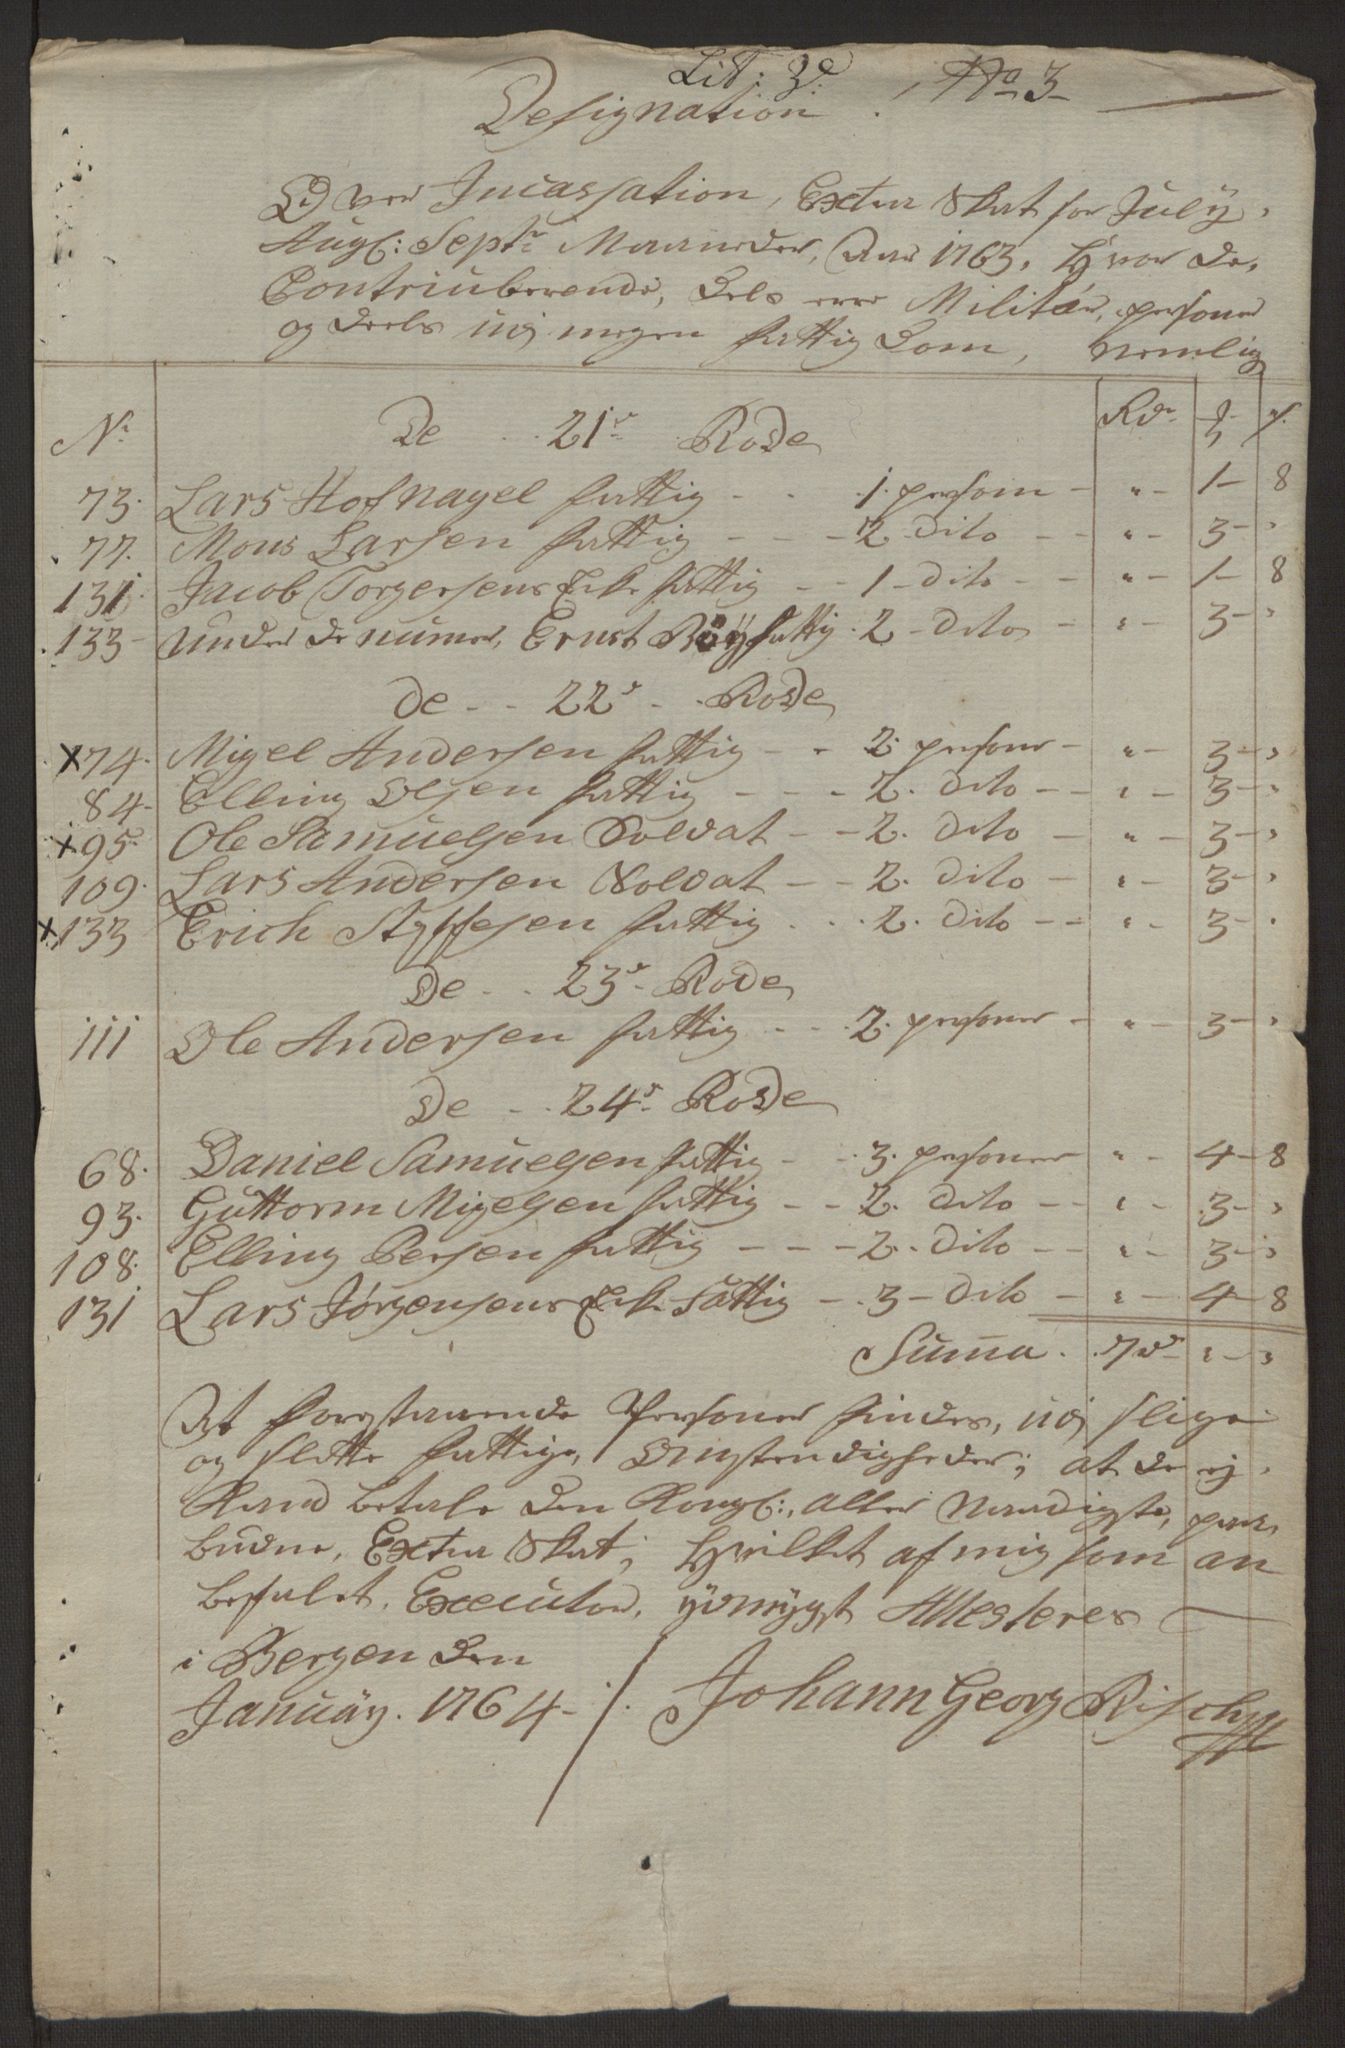 Lit: 3d: No 3
Designation.
Over Incassation, Extra Skat for July,
Augl: Septr Maaneder, Aar 1763, Hvor de,
Contriuberende, Dels ere Militær, personer
og deels udj megen fattig Dom, nemlig
Nr De 21de Rode Rdr ß
73. Lars Hofnagel fattig - - 1. person - " - 1 - 8
77. Mons Larsen fattig - - - 2. dito - - " - 3 - "
131. Jacob Torgersens Enke fattig - - 1 - dito - - " - 1 - 8
133 - under de numer, Ernst Röy fattig. 2 - dito - " - 3 - "
De - - 22de - Rode
x 74. Migel Andersen fattig - - 2. personer - " - 3 - "
84 - Elling Olsen fattig - - - 2. dito - - " - 3 - "
x 95. Ole Samuelsen Soldat - - 2. dito - " - 3 - "
109. Lars Andersen Soldat - - 2. dito - " - 3 - "
x 133 Erich Styffesen fattig - - 2. dito - - " - 3 - "
De - - 23de - Rode
111 Ole Andersen fattig - - 2. personer - " - 3 - "
De - - 24de Rode
68. Daniel Samuelsen fattig - - 3. personer " - 4 - 8
93. Guttorm Migelsen fattig - - 2. dito - - " - 3 - "
108. Elling Persen fattig - - - 2. dito - - " - 3 - "
131 Lars Jørgensens Enke Fattig - 3 - dito - " - 4 - 8
Summa. 7d " - "
At forestaaende Personer findes, udj slige
og slette fattige, Omstendigheder; at de ej
Kand betale den Kongl:, aller Naadigste, paa,
budne, Extra Skat; Hvilket af mig som an
befalet. Executor, ydmygst Attesteres
i Bergen den
Januäy. 1764 - /. Johann Georg Risch